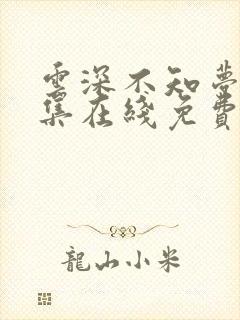 雲深不知夢
集在綫免費
龍山小米